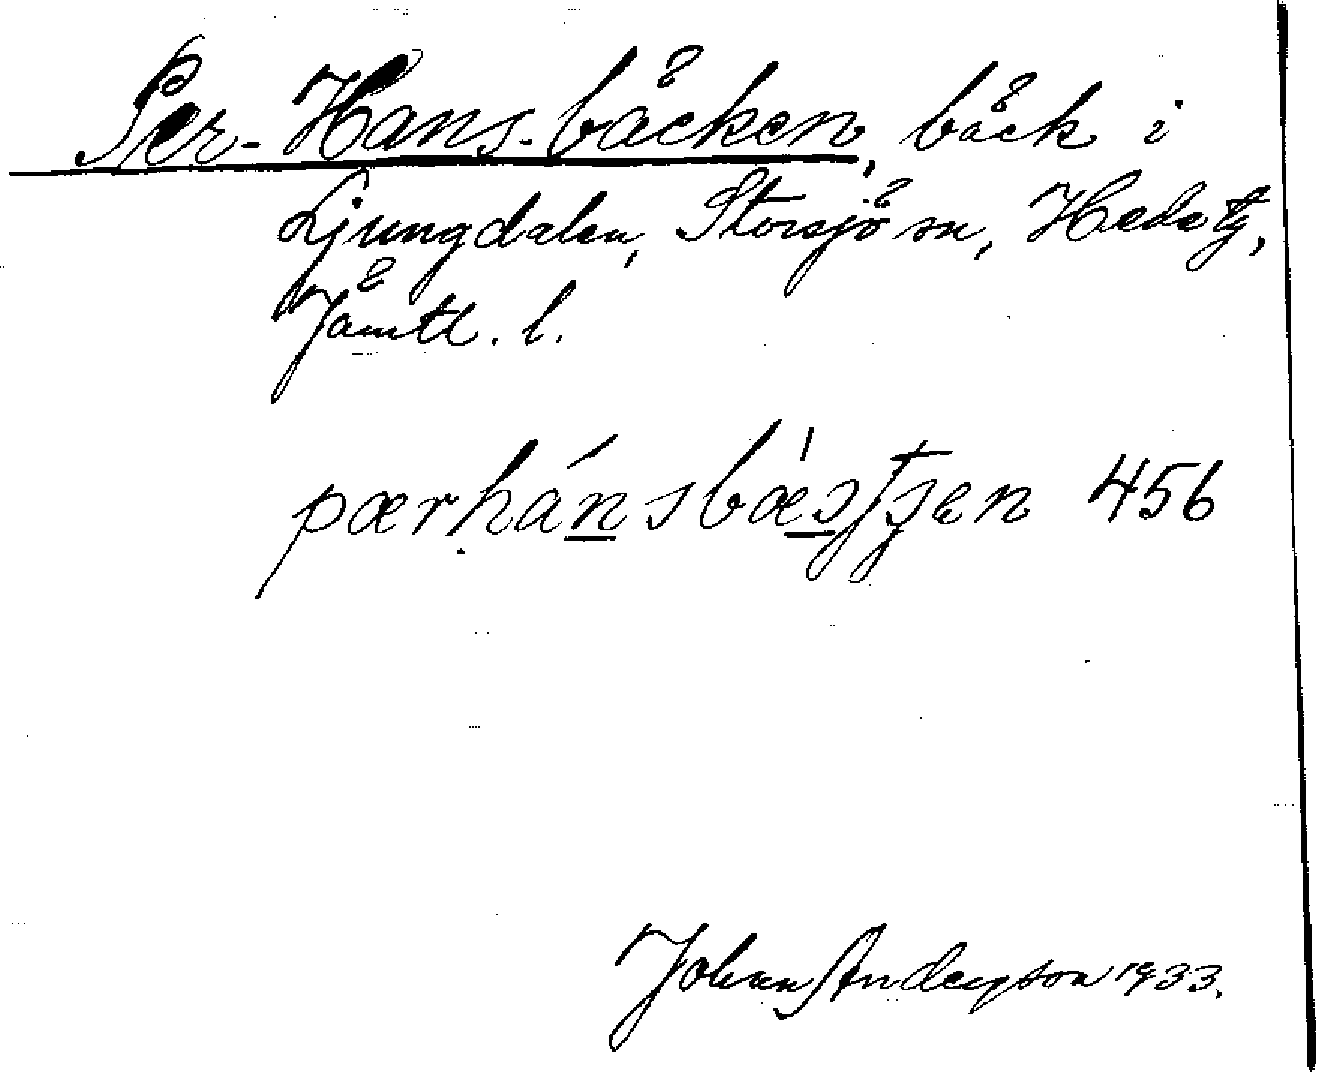 Per-Hans-bäcken, bäck i
Ljungdalen, Storsjö sn, Hede tg,
Jämtl. l.
pærhánsbæ 456
Johan Anderson 1933.